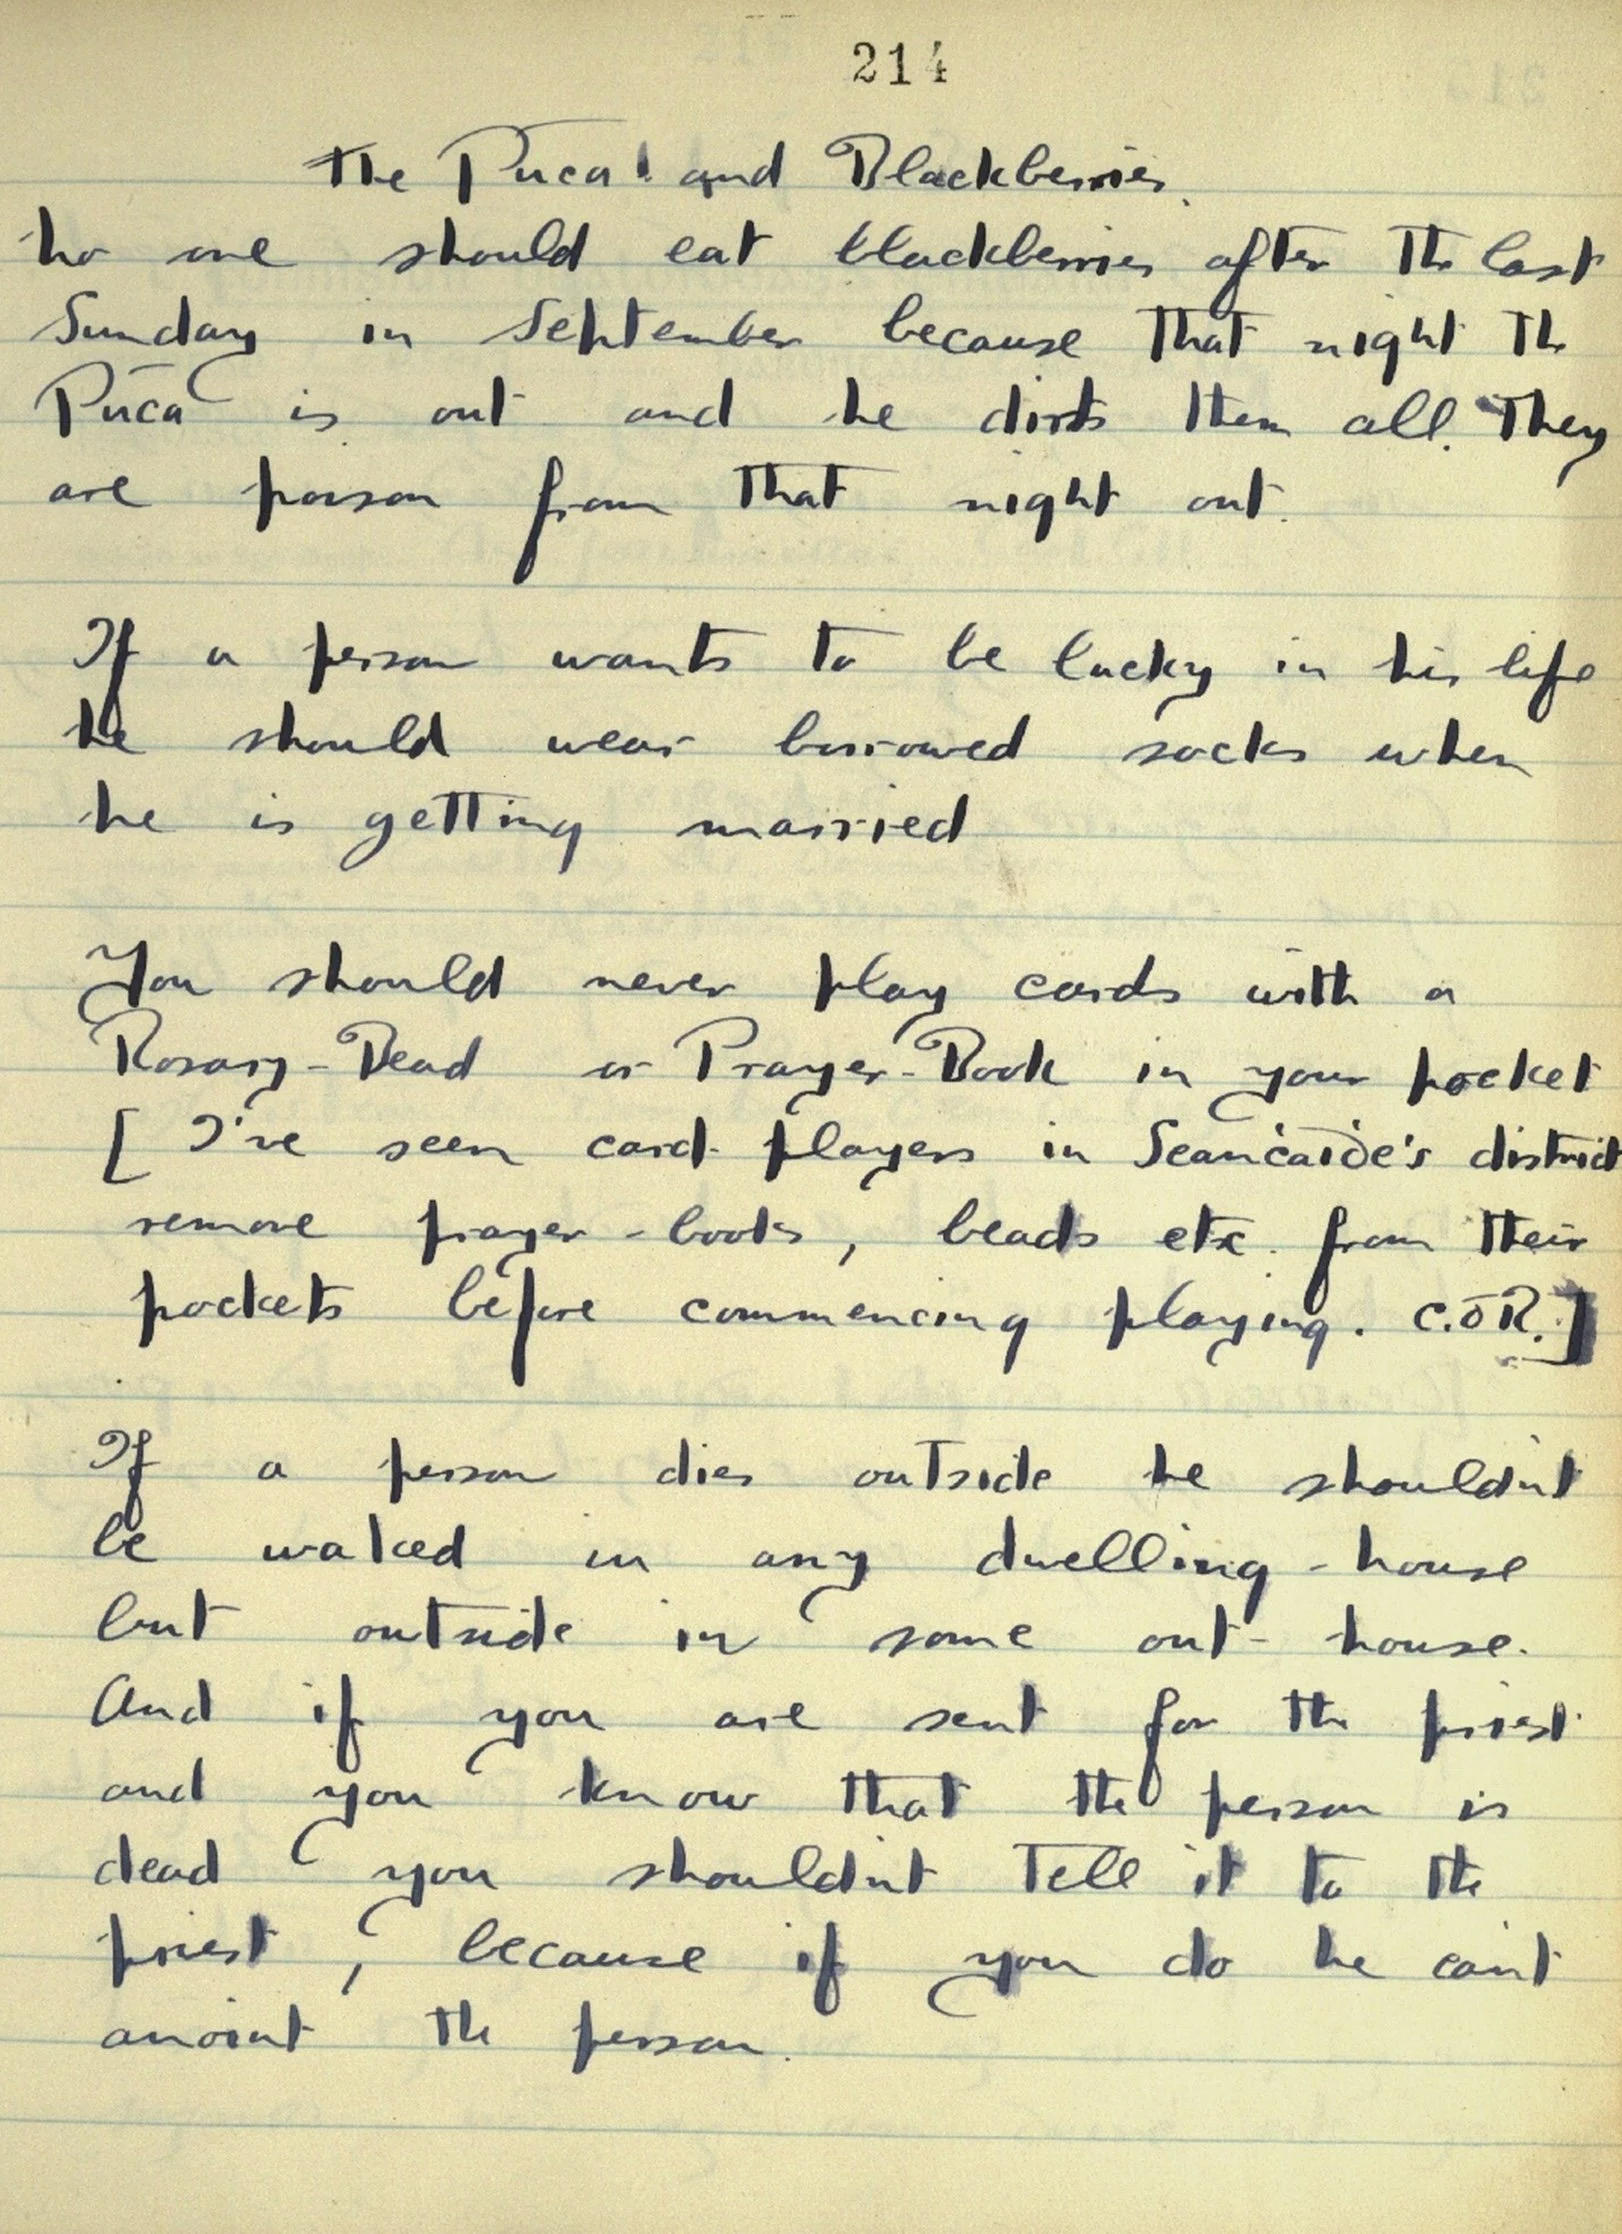 214
The Púca and Blackberries.
No one should eat blackberries after the last
Sunday in September because that night the
Púca is out and he dirts them all. They
are poison from that night out.
If a person wants to be lucky in his life
he should wear borrowed socks when
he is getting married
You should never play cards with a
Rosary-Bead or Prayer-Book in your pocket
[ I've seen card-players in Seanċaiḋe's district
remove prayer-books, beads etc. from their
pockets before commencing playing. C.ÓR.]
If a person dies outside he shouldn't
be waked in any dwelling-house
but outside in some out-house.
And if you are sent for the priest
and you know that the person is
dead you shouldn't tell it to the
priest, because if you do he can't
anoint the person.